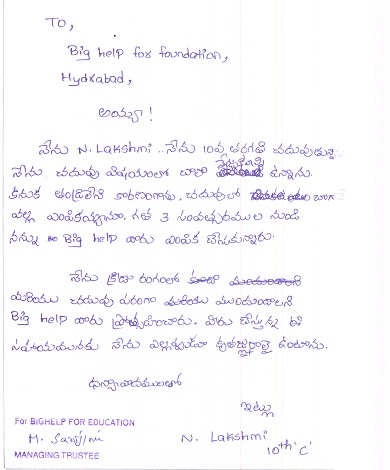 TO,
Big help for foundation,
Hydrabad,
అయ్యా !
నేను N. Lakshmi .. నేను 10వ తరగతి చదువుతున్న
నేను చదువు విషయంలో చాలా ఉన్నాను.
కనుక తండ్రిలేని కారణంగాను, చదువులో బాగా
వల్ల ఎంపికయ్యాను. గత 3 సంవత్సరముల నుండి
నన్ను Big help వారు ఎంపిక చేసుకున్నారు.
నేను క్రీడా రంగంలో
మరియు చదువు పరంగా ముందుండాలని
Big help వారు ప్రోత్సహించారు. వారు చేస్తున్న ఈ
సహాయమునకు నేను ఎల్లప్పుడూ కృతజ్ఞురాలై ఉంటాను.
ధన్యవాదములతో
ఇట్లు
N. Lakshmi
10th 'C'
For BIGHELP FOR EDUCATION
MANAGING TRUSTEE